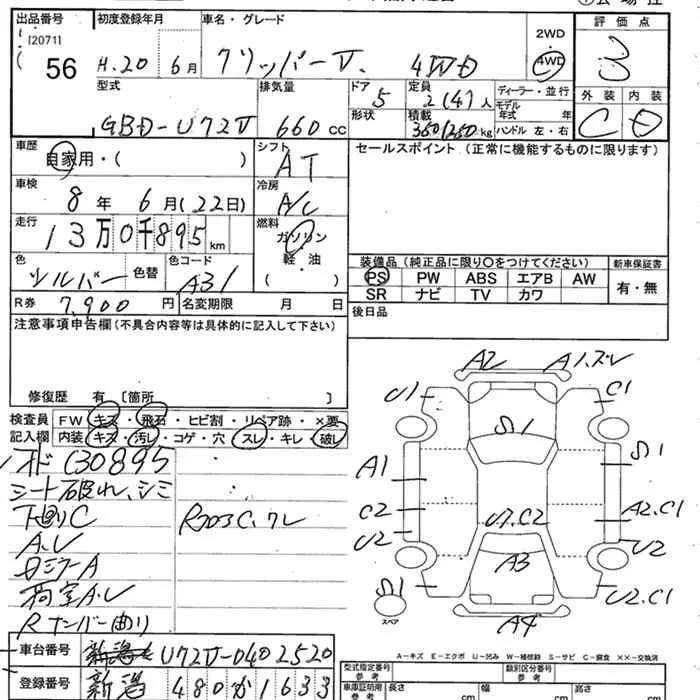 出品番号 初度登録年月 車名・グレード 評価点
[2071]
56 H.20 6月 クリッパーV 4WD 2WD 4WD 3
型式 排気量 ドア 定員 ディーラー・並行
GBD-U72V 660cc 5 2(4)人 モデル年式 年
形状 積載 350/250kg ハンドル 左・右
外装 内装
C D
車歴 自家用・( )
シフト AT
セールスポイント(正常に機能するものに限ります)
車検 8年 6月(22日)
冷房 A/C
走行 13万0千895km
燃料 ガソリン 軽・油 ( )
色 シルバー 色替 色コード A31
装備品(純正品に限り〇をつけてください) 新車保証書
PS PW ABS エアB AW 有・無
SR ナビ TV カワ
R券 7,900円 名変期限 月 日
後日品
注意事項申告欄(不具合内容等は具体的に記入して下さい)
修復歴 有 [箇所 ]
検査員記入欄 FW キズ・飛石・ヒビ割・リペア跡・×要
内装 キズ・汚レ・コゲ・穴・スレ・キレ・破レ
130895
シート破れ、シミ
下廻りC
A.U
荷室A.U
Rナンバー曲り
A2 A1.ズレ
U1 C1
A1
C2 A2.C1
U2 U7.C2 U2
A3
スペア
A4 U2.C1
A-キズ E-エクボ U-凹み W-補修跡 S-サビ C-腐食 ××-交換済
車台番号 U72V-0402520
登録番号 新潟 480か1633
型式指定番号 参考 類別区分番号 参考
車庫証明用 参考 長さ cm 幅 cm 高さ cm